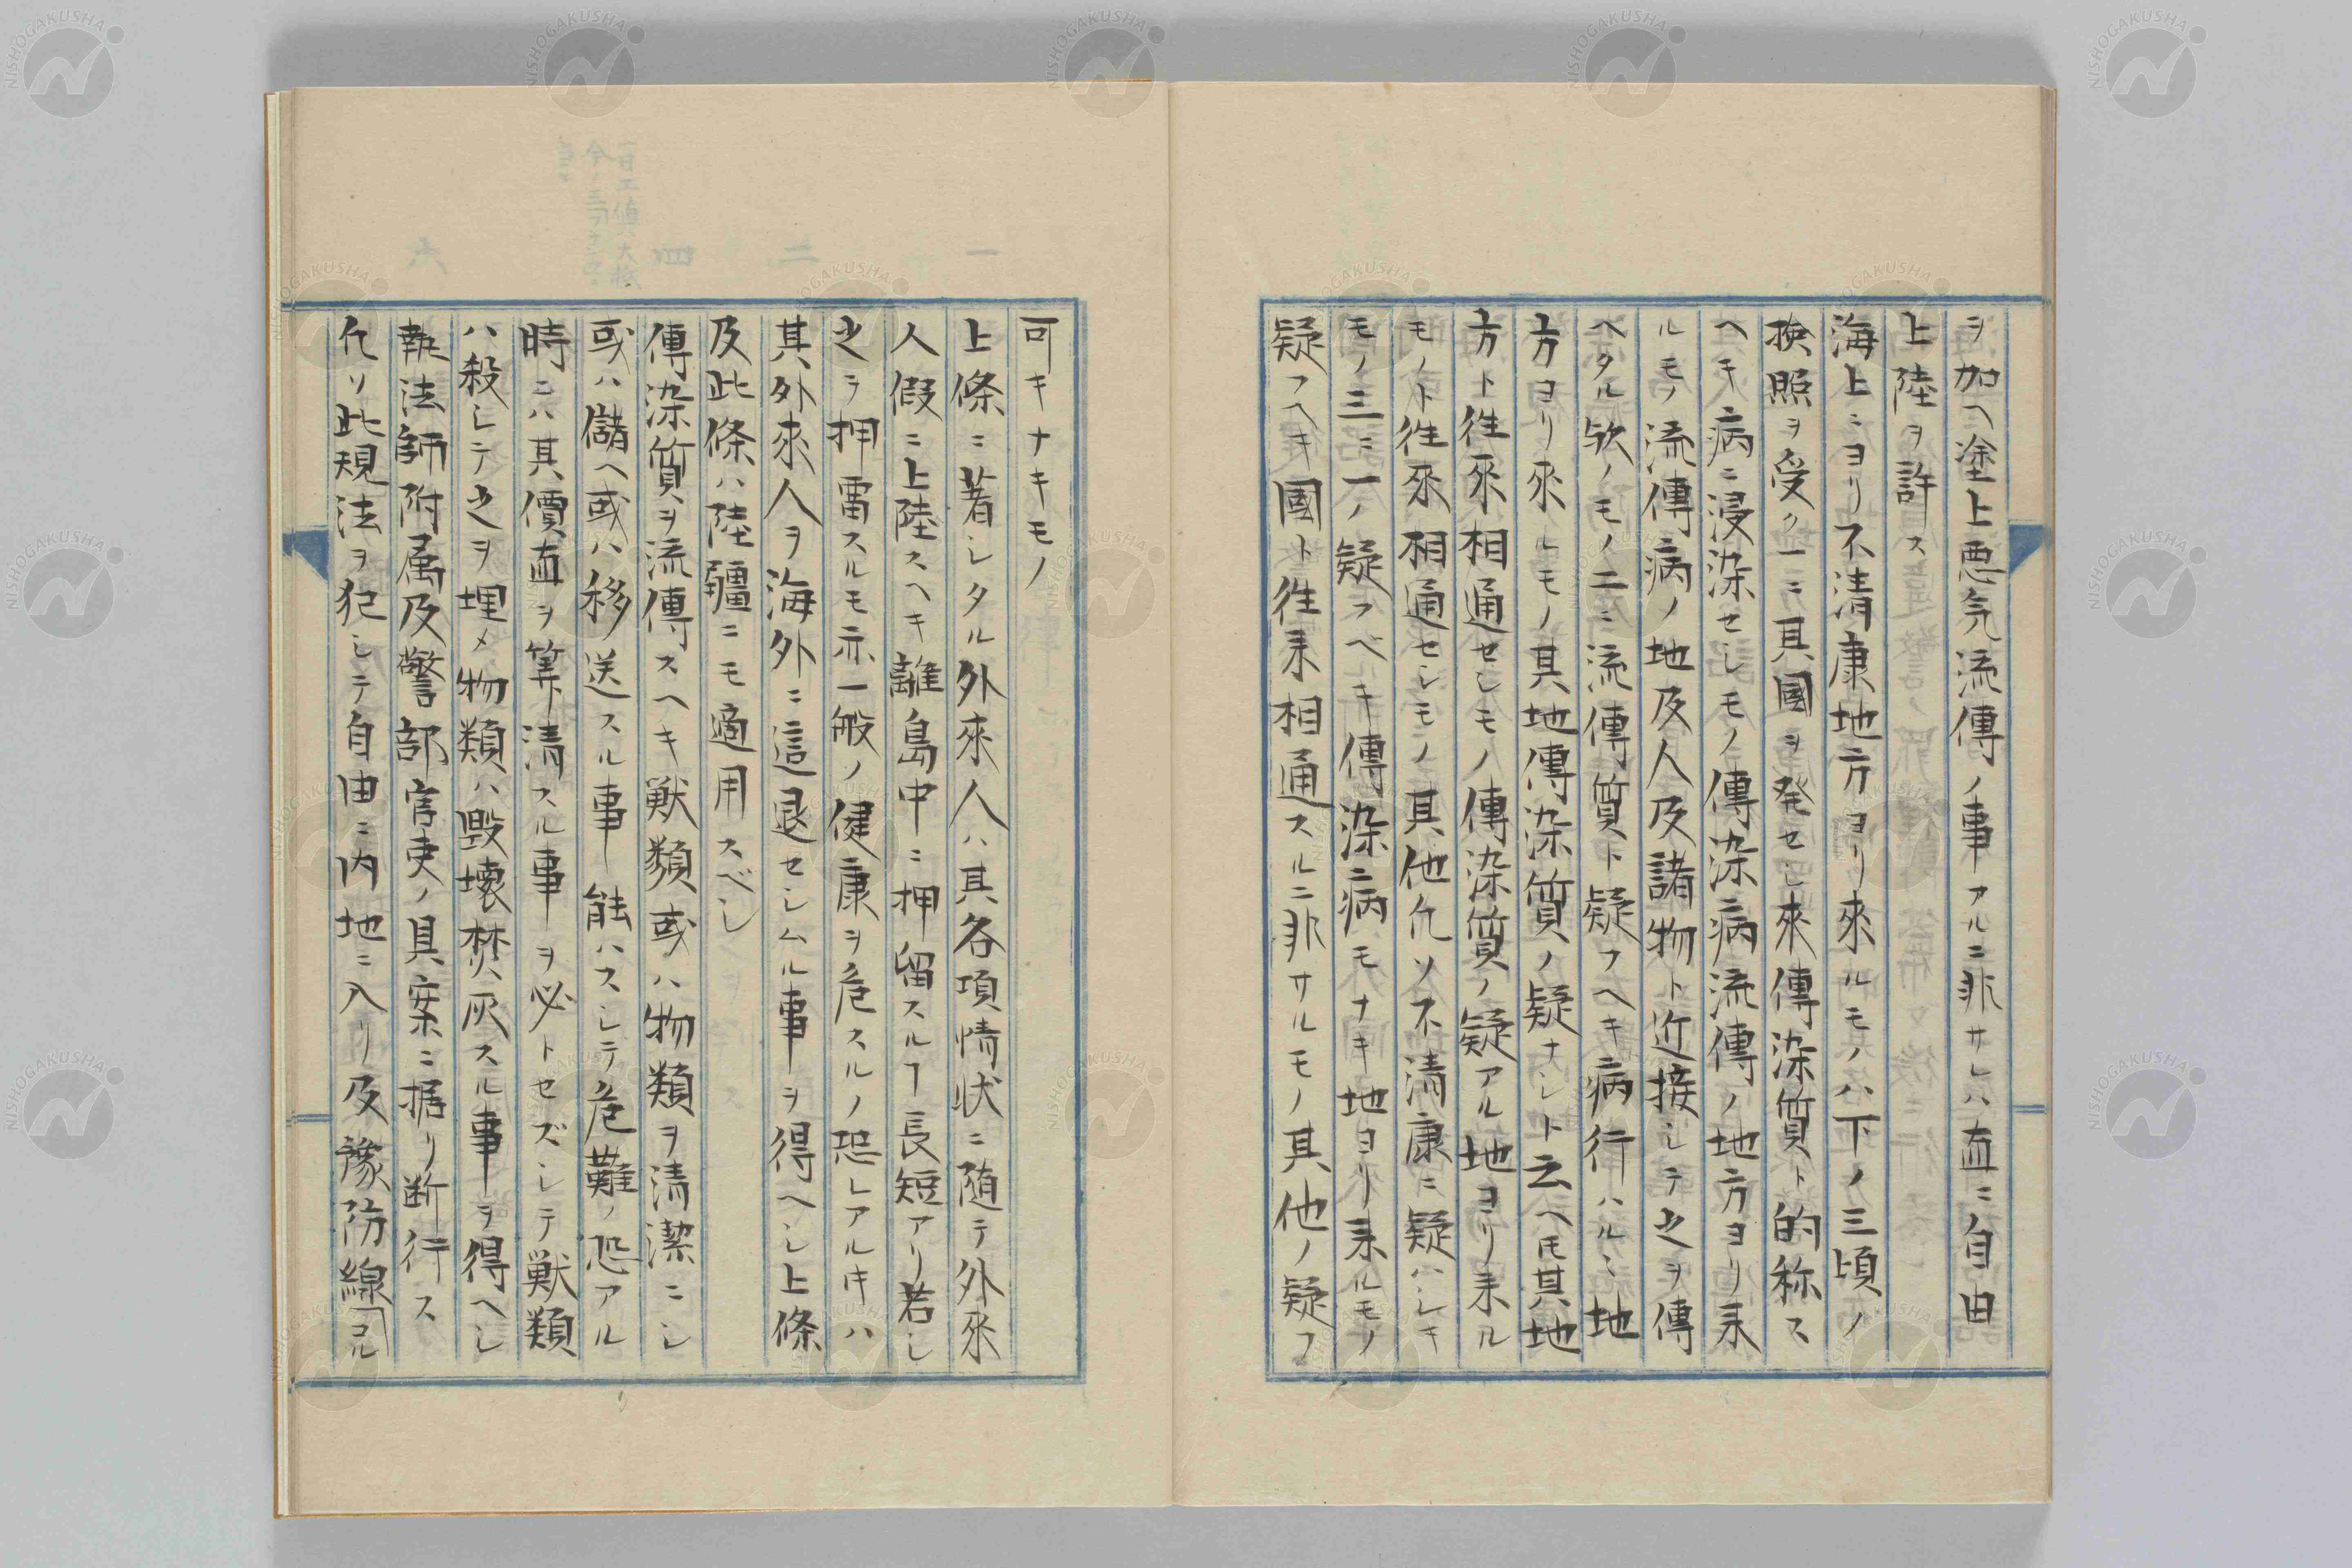 ヲ加ヘ塗上悪気流傳ノ事アルニ非サレハ直ニ自由
上陸ヲ許ス
海上ニヨリ不清康地方ヨリ來ルモノハ下ノ三項ノ
検照ヲ受ク一ニ其國ヲ発セシ來傳染質ト的称ス
ヘキ病ニ浸染セシモノ傳染病流傳ノ地方ヨリ来
ルモノ流傳病ノ地及人及諸物ト近接シテ之ヲ傳
ヘタル欤ノモノ二ニ流傳質ト疑フヘキ病行ハルヽ地
方ヨリ來ルモノ其地傳染質ノ疑ナシト云ヘ𪜈其地
方ト徃來相通セシモノ傳染質ノ疑アル地ヨリ来ル
モノト徃來相通セシモノ其他凢ソ不清康ニ疑ハシキ
モノ三ニ一ノ疑フベキ傳染病モナキ地ヨリ来ルモノ
疑フヘキ國ト徃来相通スルニ非サルモノ其他ノ疑フ
可キナキモノ
上條ニ著シタル外來人ハ其各項情状ニ随テ外來
人假ニ上陸スヘキ離島中ニ押留スルヿ長短アリ若シ
之ヲ押留スルモ亦一般ノ健康ヲ危スルノ恐レアルキハ
其外來人ヲ海外ニ逭退セシムル事ヲ得ヘシ上條
及此條ハ陸疆ニモ適用スベシ
傳染質ヲ流傳スヘキ獣類或ハ物類ヲ清潔ニシ
或ハ儲ヘ或ハ移送スル事能ハスシテ危難ノ恐アル
時ニハ其價直ヲ算清スル事ヲ必トセズシテ獣類
ハ殺シテ之ヲ埋メ物類ハ毀壊焚灰スル事ヲ得ヘシ
執法師附属及警部官吏ノ具案ニ据リ断行ス
凢ソ此規法ヲ犯シテ自由ニ内地ニ入リ及豫防線「コル
百工
今ノ
一
二
四
六